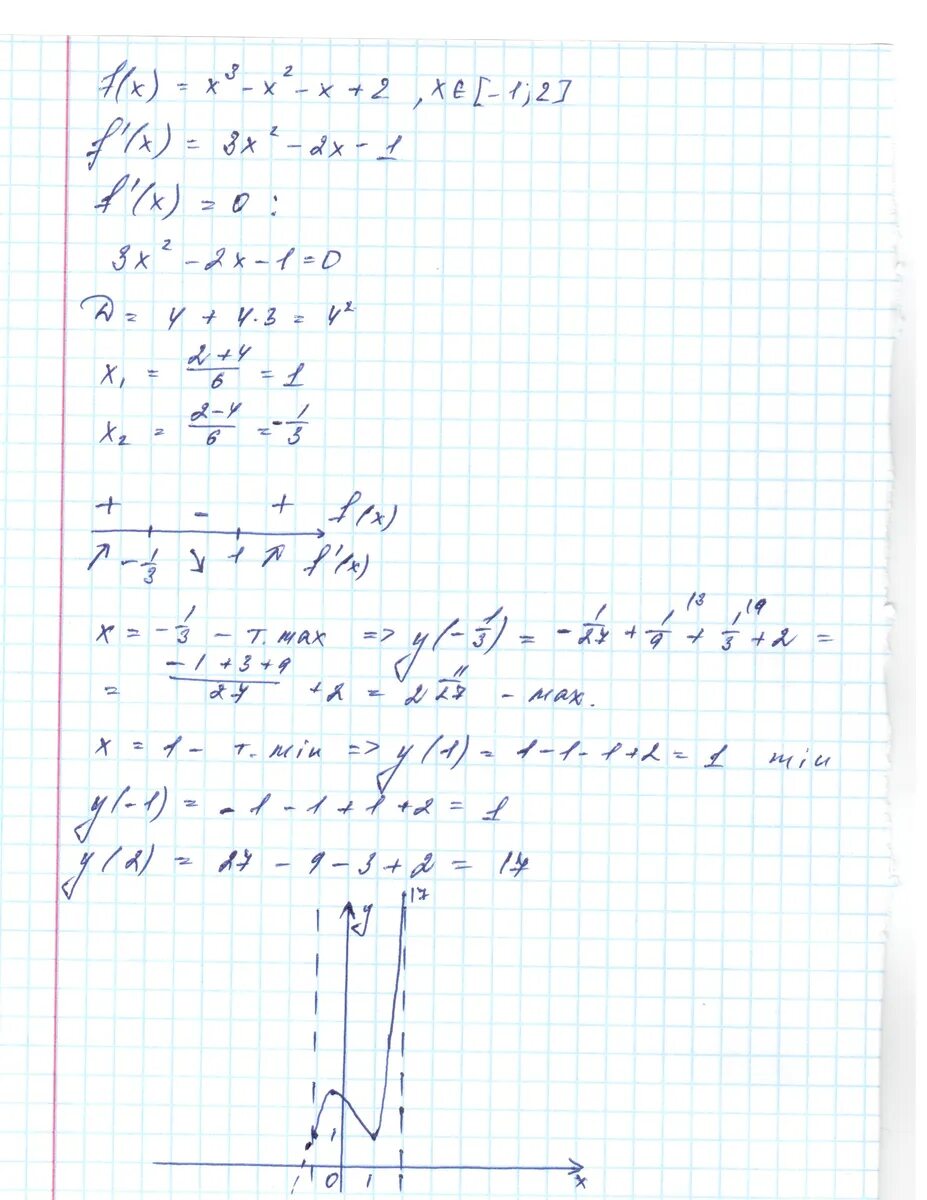 f(x) = x³ - x² - x + 2 , x ∈ [-1; 2]
f'(x) = 3x² - 2x - 1
f'(x) = 0 :
3x² - 2x - 1 = 0
D = 4 + 4·3 = 4²
x₁ = (2+4)/6 = 1
x₂ = (2-4)/6 = -1/3
+ - + f(x)
↗ -1/3 ↘ 1 ↗ f'(x)
x = -1/3 - т. max => y(-1/3) = -1/27 + 1/9 \3 + 1/3 \9 + 2 =
= (-1+3+9)/27 + 2 = 2 11/27 - max.
x = 1 - т. min => y(1) = 1-1-1+2 = 1 min
y(-1) = -1-1+1+2 = 1
y(2) = 27 - 9 - 3 + 2 = 17
y 17
1
0 1 x